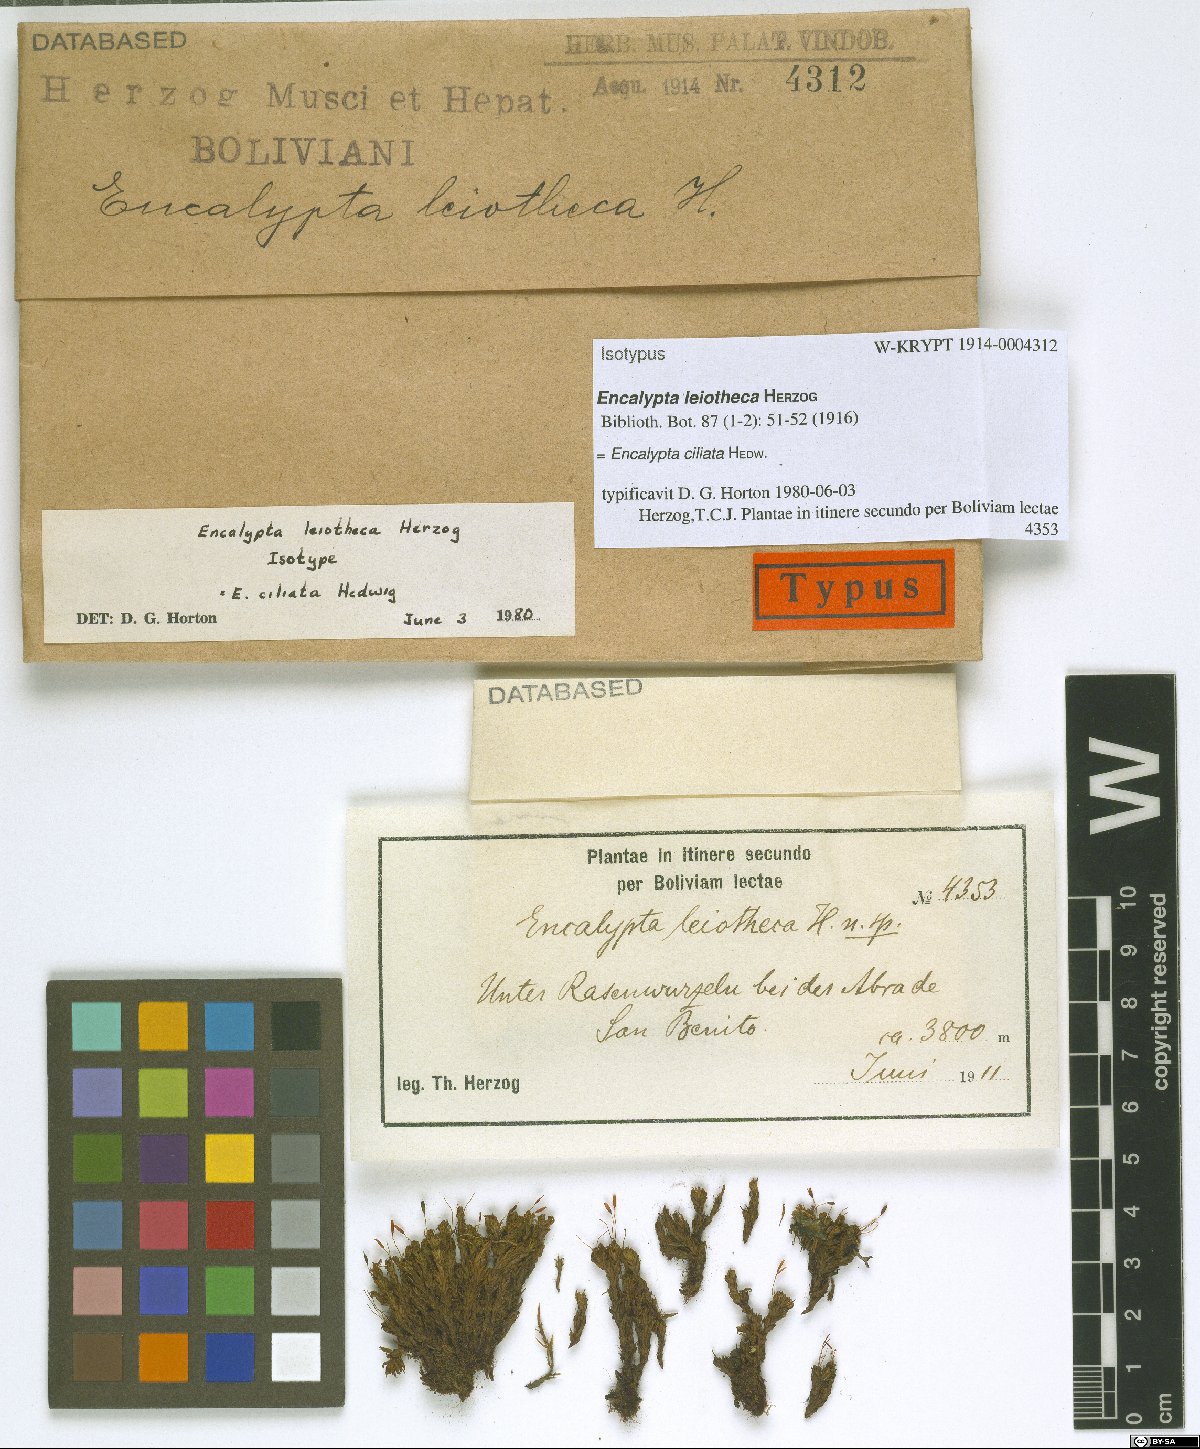 DATABASED
HERB. MUS. PALAT. VINDOB.
Acqu. 1914 Nr. 4312
Herzog Musci et Hepat.
BOLIVIANI
Encalypta leiotheca H.
Isotypus
W-KRYPT 1914-0004312
Encalypta leiotheca HERZOG
Biblioth. Bot. 87 (1-2): 51-52 (1916)
= Encalypta ciliata HEDW.
typificavit D. G. Horton 1980-06-03
Herzog,T.C.J. Plantae in itinere secundo per Boliviam lectae
4353
Encalypta leiotheca Herzog
Isotype
= E. ciliata Hedwig
DET: D. G. Horton June 3 1980
Typus
DATABASED
Plantae in itinere secundo
per Boliviam lectae
№ 4353
Encalypta leiotheca H. n. sp.
Unter Rasenwurzeln bei der Abra de
San Benito.
ca. 3800 m
leg. Th. Herzog
Juni 1911
W
10
9
8
7
6
5
4
3
2
1
0
cm
copyright reserved
CC BY-SA